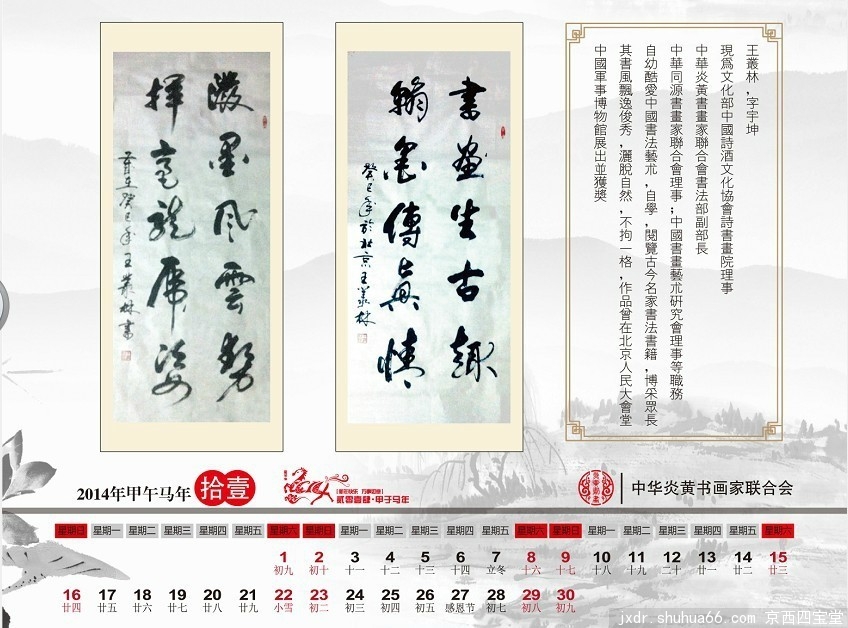 潑墨风雲勢
揮毫龍虎姿
歲在癸巳年王叢林書
書畫生古趣
翰墨傳真情
癸巳年於北京王叢林
王叢林,字宇坤
現爲文化部中國詩酒文化協會詩書畫院理事
中華炎黃書畫家聯合會書法部副部長
中華同源書畫家聯合會理事;中國書畫藝朮研究會理事等職務
自幼酷愛中國書法藝朮,自學,閱覽古今名家書法書籍,博采眾長
其書風飄逸俊秀,灑脫自然,不拘一格,作品曾在北京人民大會堂
中國軍事博物館展出並獲獎
2014年甲午马年 拾壹
贰零壹肆·甲子马年
中华炎黄书画家联合会
星期日 星期一 星期二 星期三 星期四 星期五 星期六 星期日 星期一 星期二 星期三 星期四 星期五 星期六 星期日 星期一 星期二 星期三 星期四 星期五 星期六
1 2 3 4 5 6 7 8 9 10 11 12 13 14 15
初九 初十 十一 十二 十三 十四 立冬 十六 十七 十八 十九 二十 廿一 廿二 廿三
16 17 18 19 20 21 22 23 24 25 26 27 28 29 30
廿四 廿五 廿六 廿七 廿八 廿九 小雪 初二 初三 初四 初五 感恩节 初七 初八 初九
jxdr.shuhua66.com 京西四宝堂